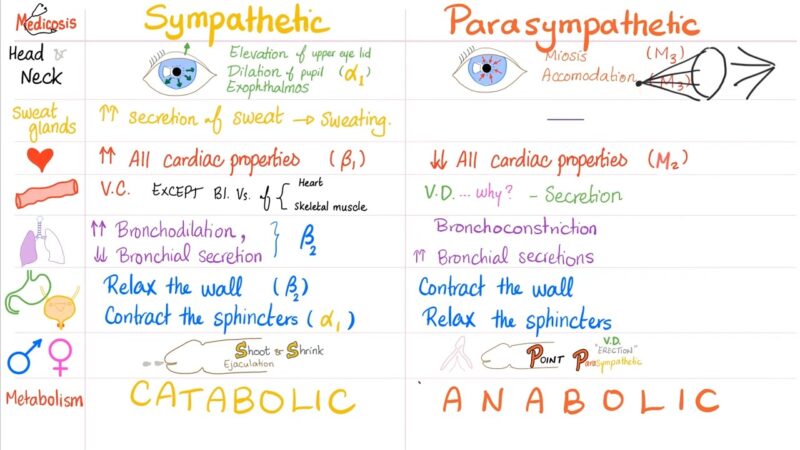 Medicosis
Sympathetic
Parasympathetic
Head & Neck
Elevation of upper eye lid
Dilation of pupil (α₁)
Exophthalmos
Miosis (M₃)
Accomodation (M₃)
Sweat glands
↑↑ secretion of sweat → Sweating.
↑↑ All cardiac properties (β₁)
↓↓ All cardiac properties (M₂)
V.C. EXCEPT Bl. Vs. of { Heart
Skeletal muscle
V.D. ... why? - Secretion
↑↑ Bronchodilation,
↓↓ Bronchial Secretion } β₂
Bronchoconstriction
↑ Bronchial secretions
Relax the wall (β₂)
Contract the sphincters (α₁)
Contract the wall
Relax the sphincters
Shoot & Shrink
Ejaculation
POINT
V.D.
"ERECTION"
Parasympathetic
Metabolism
CATABOLIC
ANABOLIC